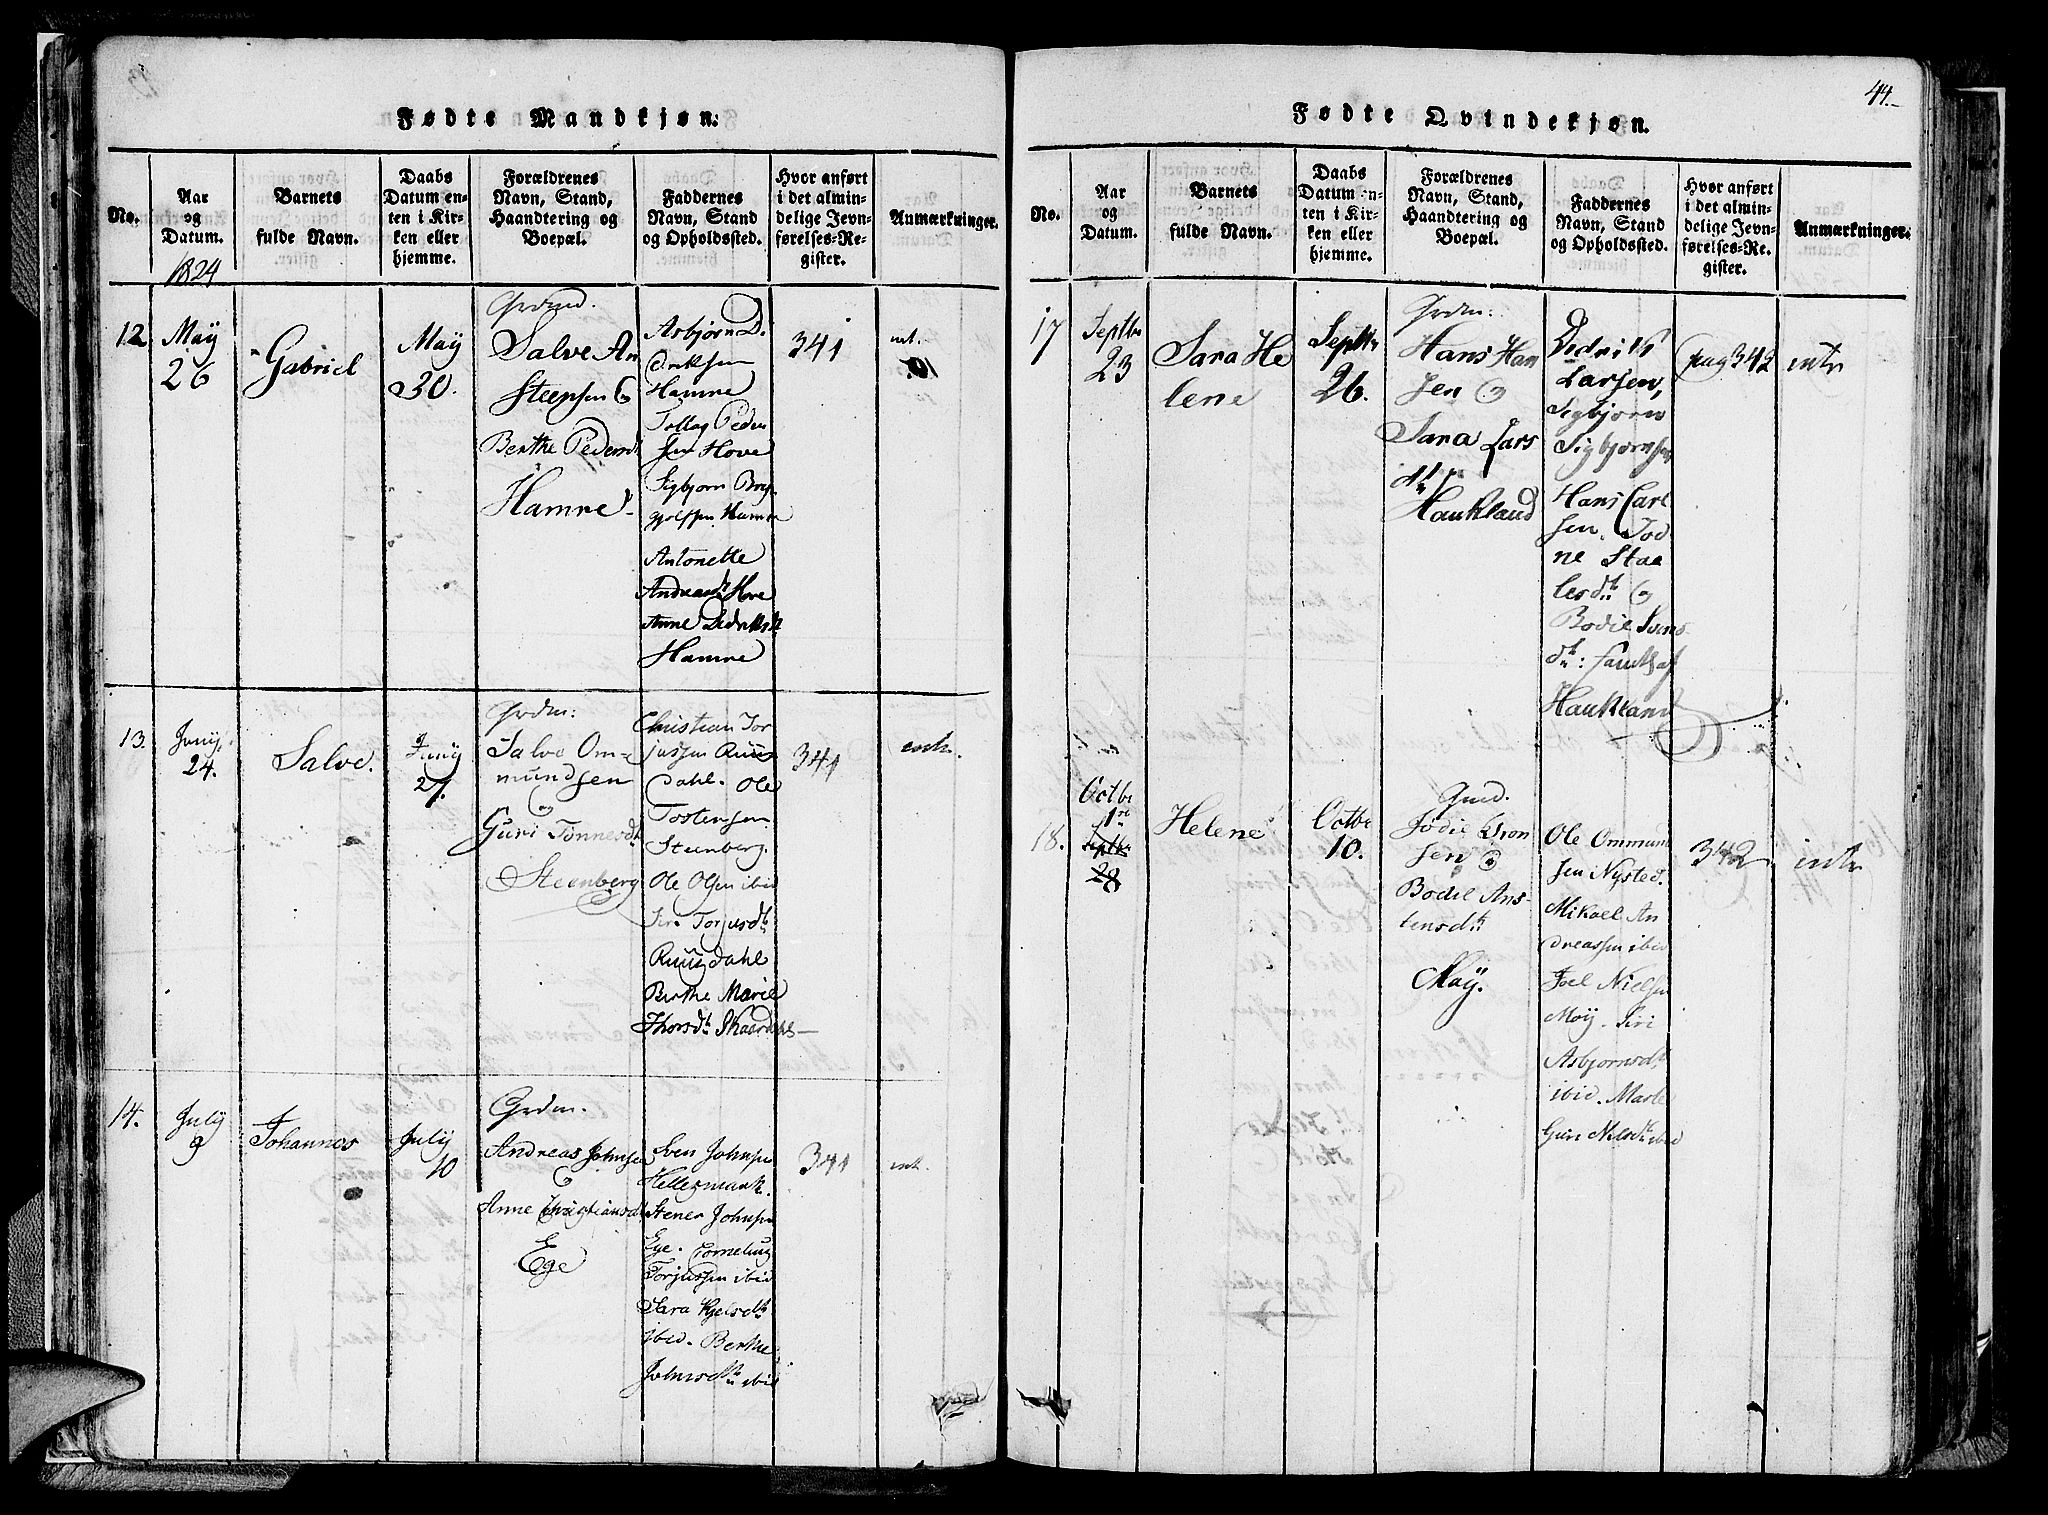 44.
Fødte Mandkjøn.
No.
Aar
og
Datum.
1824
Barnets
fulde Navn.
Daabs
Datum en-
ten i Kir-
ken eller
hjemme.
Forældrenes
Navn, Stand,
Haandtering og
Boepæl.
Faddernes
Navn, Stand
og Opholdssted.
Hvor anført
i det almin-
delige Jevn-
førelses-Re-
gister.
Anmærkninger.
12
May
26
Gabriel
May
30.
Salve An
Steensen &
Berthe Pedersd
Hamre
Asbjørn D.
Hamre
Tollag Peder
sen Hove
Sigbjørn
Hamre
Antonette
Andreasd Hove
Anne Didriksd
Hamre
341
int.
13.
Juny
24.
Salve.
Juny
27.
Grdm:
Salve Om-
mundsen
&
Guri Tønnesdt
Steenberg
Christian Tor
jussen Ruus
dahl. Ole
Tostensen
Steenberg.
Ole Olsen ibid
Siri Torjusdt
Ruusdahl
Berthe Marie
Thorsdt Skaardahl
341
14.
July
9
Johannes
July
10
Grdm.
Andreas Johnse
&
Anne Christiansd
Ege
Sven Johnsen
Hellesmark.
Stener Johnsen
Ege. Cornelius
Torjussen ibid
Sara Kjelsdt
ibid. Berthe
Johnsdt ibid
341
int.
Fødte Qvindekjøn.
No.
Aar
og
Datum.
Barnets
fulde Navn.
Daabs
Datum en-
ten i Kir-
ken eller
hjemme.
Forældrenes
Navn, Stand,
Haandtering og
Boepæl.
Faddernes
Navn, Stand
og Opholdssted.
Hvor anført
i det almin-
delige Jevn-
førelses-Re-
gister.
Anmærkninger.
17
Septbr
23
Sara He
lene
Septbr
26.
Grdm:
Hans Han
sen &
Sara Lars
dt
Haukland
Didrik
Larsen,
Sigbjørn
Sigbjørnsen
Hans Carl
sen. Tod
ne Staa
lesdt &
Bodil Svens
dt: samtl af
Haukland
pag 342
intr
18.
Octbr
1ste
Septbr
28
Helene
Octbr
10.
Bodil Ans
tensdt
Møy.
Ole Ommund
sen Nysted.
Mikael An
dreassen ibid
Joel Nielsen
Møy. Siri
Asbjørnsdt
ibid. Marte
Guri Nilsdt ibid
342
intr